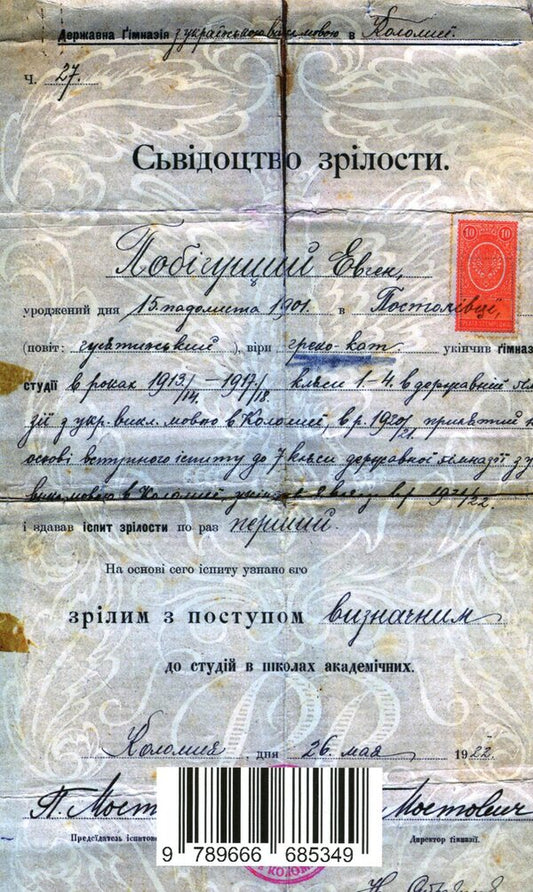 Державна Ґімназія з українською викл. мовою в Коломиї.
Ч. 27.
Сьвідоцтво зрілости.
Побігущий Евген,
уроджений дня 15 падолиста 1901 в Постолівці,
(повіт: гусятинський), віри греко-кат укінчив ґімназ
10 10
студії в роках 1913/14 – 1917/18 кляси 1-4. в державній ґім
зії з укр. викл. мовою в Коломиї, в р. 1920/21 принятий н
основі вступного іспиту до 7 кляси державної ґімназії з у
викл. мовою в Коломиї 1921/22.
і здавав іспит зрілости по раз перший.
На основі сего іспиту узнано єго
зрілим з поступом визначним
до студій в школах академічних.
Коломия, дня 26. мая 1922.
П. Мост Мостович
Предсїдатель іспитов Директор ґімназії.
9 789666 685349
КОЛОМ